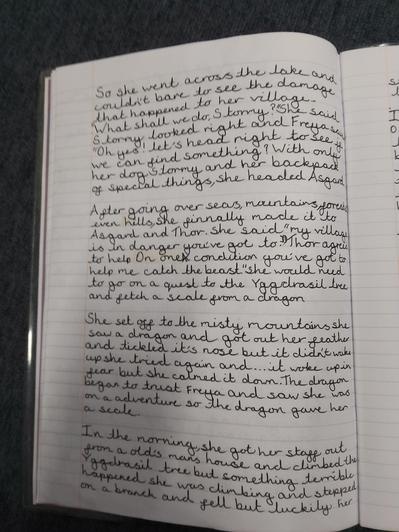 So she went across the lake and
couldn't bare to see the damage
that happened to her village.
"What shall we do, Stormy?" She said
Stormy looked right and Freya said
"Oh yes! let's head right to see if
we can find something? With only
her dog Stormy and her backpack
of special things, she headed Asgard
After going over seas, mountains, forests
even hills, she finnally made it to
Asgard and Thor. She said "my village
is in danger you've got to." Thor agreed
to help On one condition you've got to
help me catch the beast" she would need
to go on a quest to the Yggdrasil tree
and fetch a scale from a dragon
She set off to the misty mountains she
saw a dragon and got out her feather
and tickled it's nose but it didn't wake
up she tried again and....it woke up in
fear but she calmed it down. The dragon
began to trust Freya and saw she was
on a adventure so the dragon gave her
a scale.
In the morning, she got her staff out
from a old's mans house and climbed the
Yggdrasil tree but something terrible
happened she was climbing and stepped
on a branch and fell but luckily her